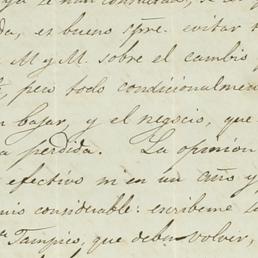 ya se han consultado, se
da, es bueno spre. evitar
M y M. sobre el cambio
pero todo condicionalmen
n bajar, y el negocio, que
a perdida. La opinion
efectivo ni en un año y
uis considerable: escribeme
Tampico, que debe volver,